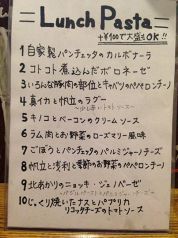 Lunch Pasta
+¥100で大盛もOK!!
1 自家製パンチェッタのカルボナーラ
2 コトコト煮込んだボロネーゼ
3 いろんな豚肉の部位とキャベツのペペロンチーノ
4 真イカと帆立のラグー
～少し辛いトマトソース～
5 キノコとベーコンのクリームソース
6 ラム肉とお野菜のローズマリー風味
7 ごぼうとパンチェッタのパルミジャーノチーズ
8 帆立と浅利と季節のお野菜のペペロンチーノ
9 北あかりのニョッキ・ジェノベーゼ
10 じっくり焼いたナスとパプリカ
リコッタチーズのトマトソース